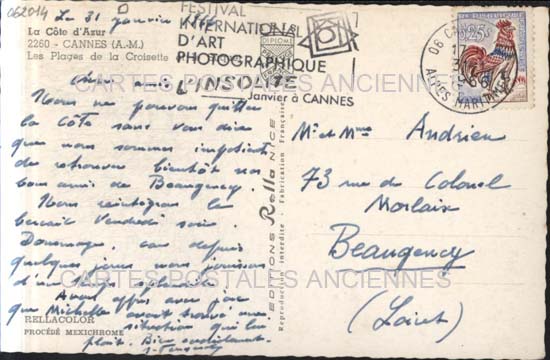 062014
Le 31 janvier
La Côte d'Azur
2260 - CANNES (A.-M.)
Les Plages de la Croisette
FESTIVAL
INTERNATIONAL
D'ART
PHOTOGRAPHIQUE
L'INSOLITE
Janvier à CANNES
0,25
06 CANNES
1966
ALPES MARITIMES
CARTES POSTALES ANCIENNES
Nous ne pouvons quitter
la côte sans vous dire
que nous sommes impatients
de retrouver bientôt nos
bons amis de Beaugency.
Nous réintégrons le
bercail Vendredi soir.
Dommage, car depuis
quelques jours nous jouissons
d'un
Avons appris avec joie
que Michelle avait trouvé une
situation qui lui
plait. Bien cordialement
RELLACOLOR
PROCÉDÉ MEXICHROME
EDITIONS Rella NICE
Reproduction Interdite - Fabrication Française
Mr et Mme Andrieu
73 rue du Colonel
Morlaix
Beaugency
(Loiret)
CARTES POSTALES ANCIENNES